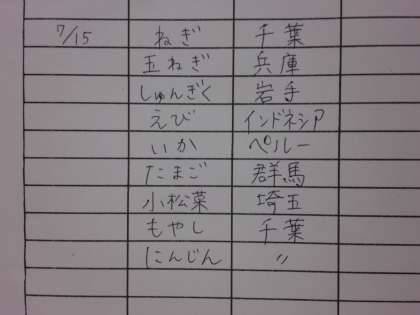 7/15 ねぎ 千葉
玉ねぎ 兵庫
しゅんぎく 岩手
えび インドネシア
いか ペルー
たまご 群馬
小松菜 埼玉
もやし 千葉
にんじん 〃